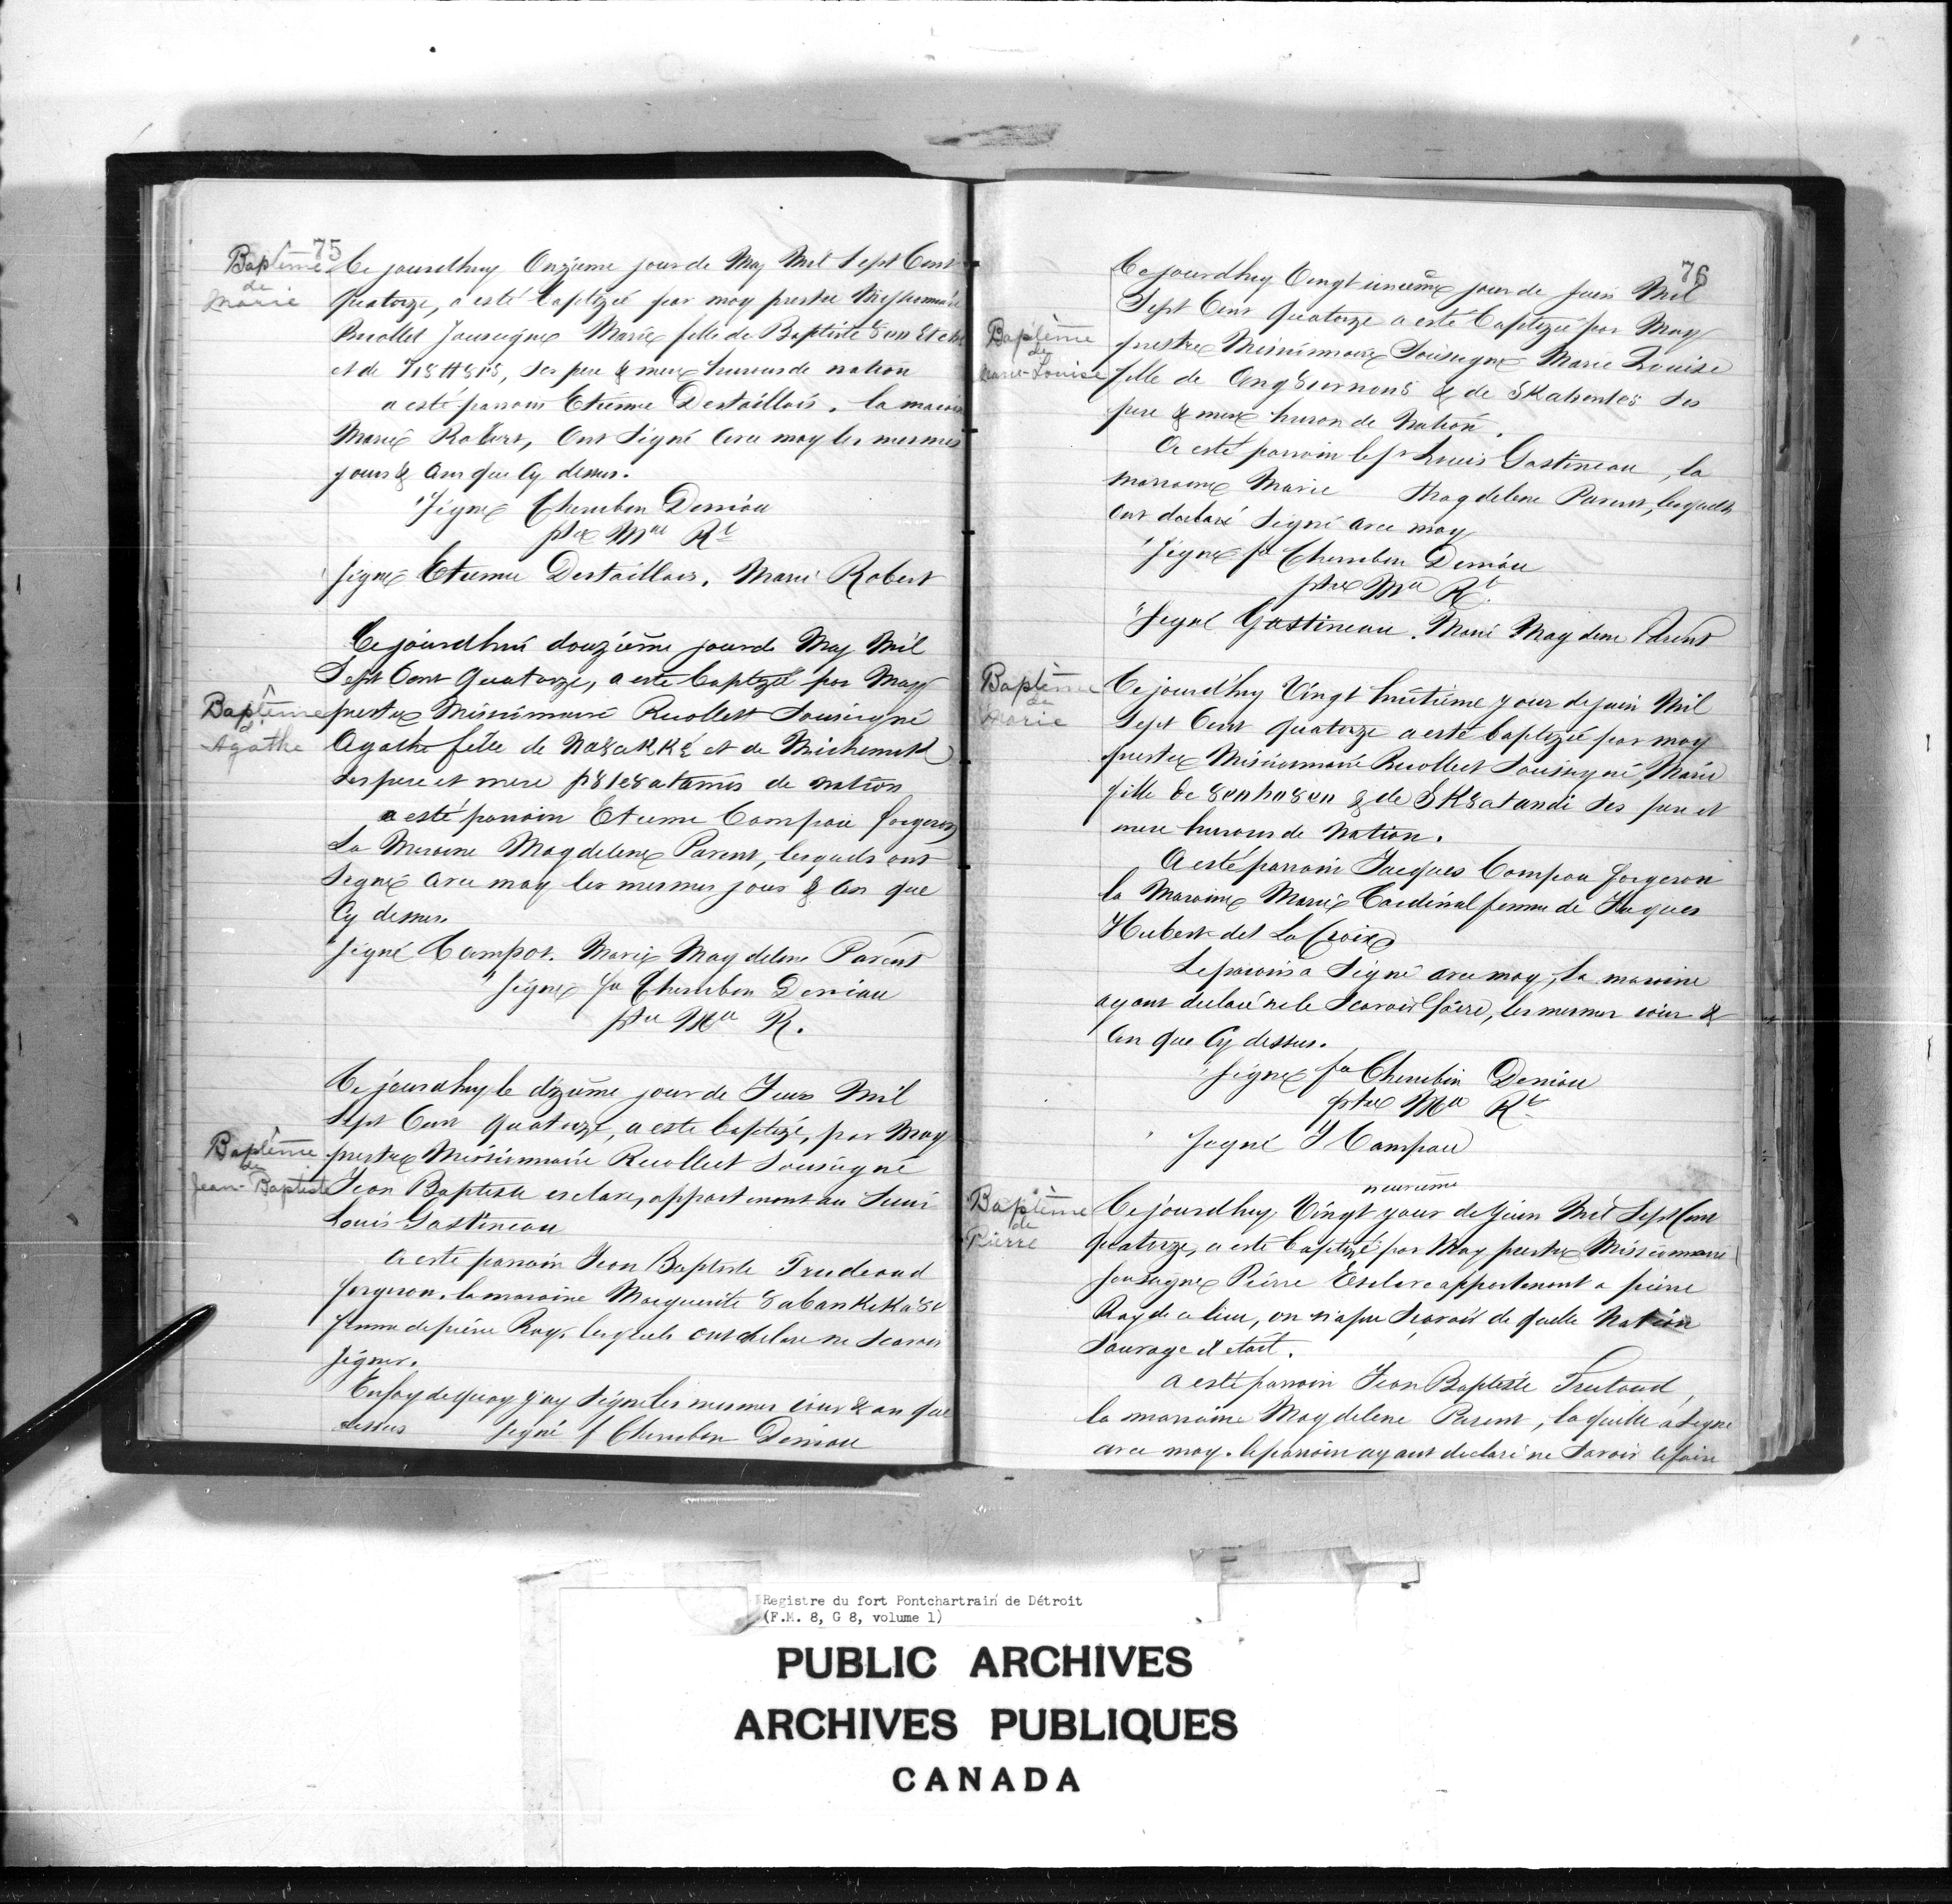 75
Baptême
de
Marie
Ce jourdhuy Onzieme jour de May Mil Sept Cent
quatorze, a esté baptizée par moy prestre Missionnaire
Recollet Soussigné Marie fille de Baptiste
et de ses pere & mere hurons de nation
a esté parrain Etienne Destaillais. la maraine
Marie Robert, Ont Signé avec moy les mesmes
jours & an que Cy dessus.
Signé Cherubin Deniau
ptre Mre Rt
Signé Etienne Destaillais. Marie Robert
Ce jourdhui douzième jour de May Mil
Sept Cent quatorze, a esté baptizée par Moy
Baptême
d'
Agathe
prestre Missionnaire Recollett Soussigné
Agathe fille de Na8akké et de
ses pere et mere p8te8atamis de nation
a esté parrain Etienne Campau forgeron
La Maraine Magdelene Parent, lesquels ont
Signé avec moy les mesmes jour & an que
Cy dessus.
Signé Campot. Marie Magdelene Parent
Signé fr Cherubin Deniau
ptre Mre R.
Ce jourdhuy le dizieme jour de Juin Mil
Sept Cent quatorze, a esté baptizé, par Moy
Baptême
de
Jean-Baptiste
prestre Missionnaire Recollect Soussigné
Jean Baptiste esclave, appartenant au Sieur
Louis Gastineau
a esté parrain Jean Baptiste Trudeaud
forgeron. la maraine Marguerite 8abankeka8e
femme de piere Roy. lesquels ont declaré ne Scavoir
signer.
En foy de quoy j'ay Signé les mesmes iour & an que
dessus Signé f Cherubin Deniau
76
Ce jourdhuy Vingtunieme jour de Juin Mil
Sept Cent quatorze a esté baptizée par Moy
Baptême
de
Marie-Louise
prestre Missionnaire Soussigné Marie Louise
fille de Ang8iernon8 & de Skatsentes ses
pere & mere huron de Nation.
A esté parrain le sr Louis Gastineau, la
marraine Marie Magdelene Parent, lesquels
ont declaré Signé avec moy
Signé fr Cherubin Deniau
ptre Mre Rt
Signé Gastineau. Marie Magdene Parent
Baptême
de
Marie
Ce jourd'huy Vingt huitième jour de juin Mil
Sept Cent quatorze a esté baptizée par moy
prestre Missionnaire Recollect Soussigné, Marie
fille de 8enha8en & de Sk8atandi ses pere et
mere hurons de Nation.
A esté parrain Jacques Campau forgeron
la Maraine Marie Cardinal femme de Jaques
Hubert det La Croix
Le parain a Signé avec moy, la maraine
ayant declaré ne le Scavoir faire, les mesmes iour &
an que Cy dessus.
Signé fr Cherubin Deniau
ptre Mre Rt
Signé J Campau
Baptême
de
Pierre
neuvieme
Ce jourdhuy Vingt jour de Juin Mil Sept Cent
quatorze, a esté baptizé par Moy prestre Missionnaire
Soussigné Pierre Esclave appartenant a pierre
Roy de ce lieu, on n'a pu Scavoir de quelle Nation
Sauvage il etoit.
a esté parrain Jean Baptiste Trutaud,
la marraine Magdelene Parent, laquelle a Signé
avec moy. le parrain ayant declaré ne Savoir le faire
Registre du fort Pontchartrain de Détroit
(F.M. 8, G 8, volume 1)
PUBLIC ARCHIVES
ARCHIVES PUBLIQUES
CANADA